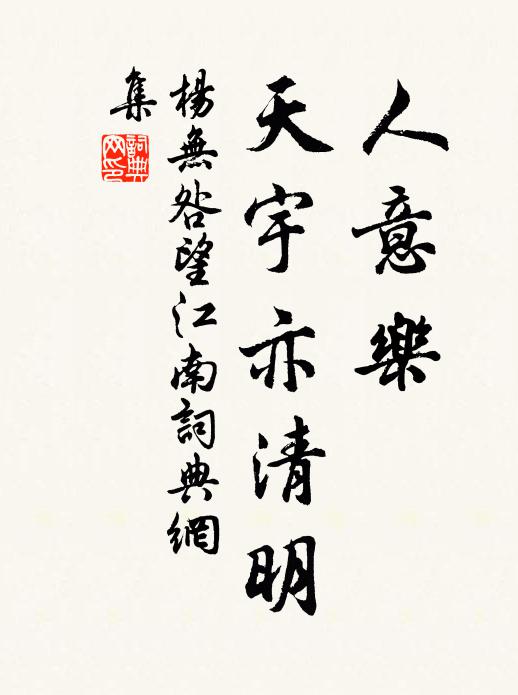 人意樂
天宇亦清明
楊無咎望江南詞典網
集
詞典
网印